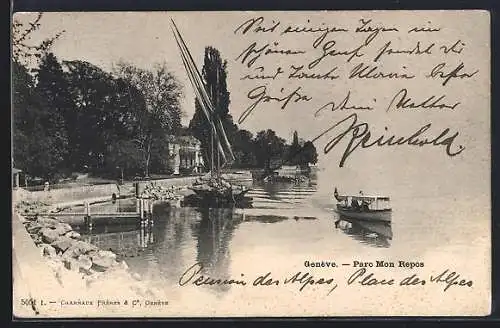 Seit einigen Tagen im
schönen Genf, sendet dir
und Tante Maria beste
Grüße
Dein Neffe
Reinhold
Genève. — Parc Mon Repos
Pension des Alpes, Place des Alpes
CHARNAUX FRÈRES & Cº, GENÈVE